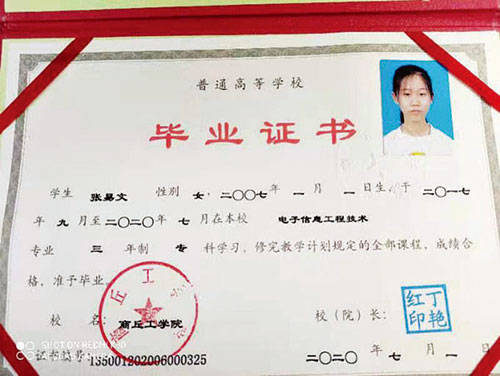 普通高等学校
毕业证书
学生 张易文 性别 女，二〇〇七年 一 月 一 日生，于 二〇一七
年 九 月至 二〇二〇 年 七 月在本校 电子信息工程技术
专业 三 年制 专 科学习，修完教学计划规定的全部课程，成绩合
格，准予毕业。
校 名：商丘工学院 校（院）长：
丁艳红印
135001202006000325 二〇二〇 年 七 月 一
SHOT ON REDMI